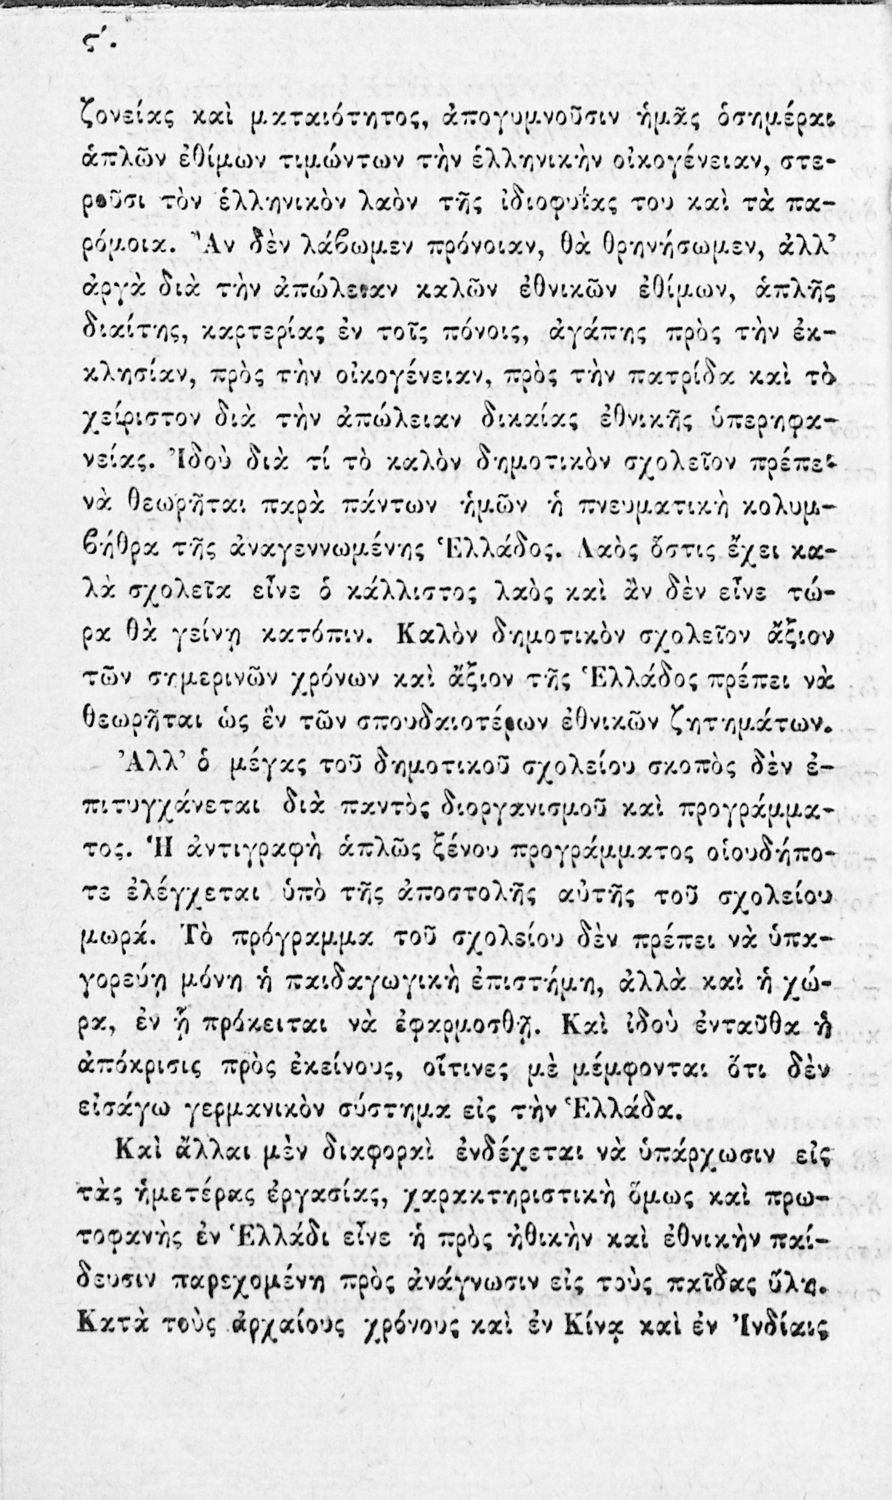 ϛ′.
ζονείας καὶ ματαιότητος, ἀπογυμνοῦσιν ἡμᾶς ὁσημέραι
ἁπλῶν ἐθίμων τιμώντων τὴν ἑλληνικὴν οἰκογένειαν, στε-
ροῦσι τὸν ἑλληνικὸν λαὸν τῆς ἰδιοφυΐας του καὶ τὰ πα-
ρόμοια. Ἂν δὲν λάβωμεν πρόνοιαν, θὰ θρηνήσωμεν, ἀλλ’
ἀργὰ διὰ τὴν ἀπώλειαν καλῶν ἐθνικῶν ἐθίμων, ἁπλῆς
διαίτης, καρτερίας ἐν τοῖς πόνοις, ἀγάπης πρὸς τὴν ἐκ-
κλησίαν, πρὸς τὴν οἰκογένειαν, πρὸς τὴν πατρίδα καὶ τὸ
χείριστον διὰ τὴν ἀπώλειαν δικαίας ἐθνικῆς ὑπερηφα-
νείας. Ἰδοὺ διὰ τί τὸ καλὸν δημοτικὸν σχολεῖον πρέπει
νὰ θεωρῆται παρὰ πάντων ἡμῶν ἡ πνευματικὴ κολυμ-
βήθρα τῆς ἀναγεννωμένης Ἑλλάδος. Λαὸς ὅστις ἔχει κα-
λὰ σχολεῖα εἶνε ὁ κάλλιστος λαὸς καὶ ἂν δὲν εἶνε τώ-
ρα θὰ γείνῃ κατόπιν. Καλὸν δημοτικὸν σχολεῖον ἄξιον
τῶν σημερινῶν χρόνων καὶ ἄξιον τῆς Ἑλλάδος πρέπει νὰ
θεωρῆται ὡς ἓν τῶν σπουδαιοτέρων ἐθνικῶν ζητημάτων.
Ἀλλ’ ὁ μέγας τοῦ δημοτικοῦ σχολείου σκοπὸς δὲν ἐ-
πιτυγχάνεται διὰ παντὸς διοργανισμοῦ καὶ προγράμμα-
τος. Ἡ ἀντιγραφὴ ἁπλῶς ξένου προγράμματος οἱουδήπο-
τε ἐλέγχεται ὑπὸ τῆς ἀποστολῆς αὐτῆς τοῦ σχολείου
μωρά. Τὸ πρόγραμμα τοῦ σχολείου δὲν πρέπει νὰ ὑπα-
γορεύῃ μόνη ἡ παιδαγωγικὴ ἐπιστήμη, ἀλλὰ καὶ ἡ χώ-
ρα, ἐν ᾗ πρόκειται νὰ ἐφαρμοσθῇ. Καὶ ἰδοὺ ἐνταῦθα ἡ
ἀπόκρισις πρὸς ἐκείνους, οἵτινες μὲ μέμφονται ὅτι δὲν
εἰσάγω γερμανικὸν σύστημα εἰς τὴν Ἑλλάδα.
Καὶ ἄλλαι μὲν διαφοραὶ ἐνδέχεται νὰ ὑπάρχωσιν εἰς
τὰς ἡμετέρας ἐργασίας, χαρακτηριστικὴ ὅμως καὶ πρω-
τοφανὴς ἐν Ἑλλάδι εἶνε ἡ πρὸς ἠθικὴν καὶ ἐθνικὴν παί-
δευσιν παρεχομένη πρὸς ἀνάγνωσιν εἰς τοὺς παῖδας ὕλη.
Κατὰ τοὺς ἀρχαίους χρόνους καὶ ἐν Κίνᾳ καὶ ἐν Ἰνδίαις